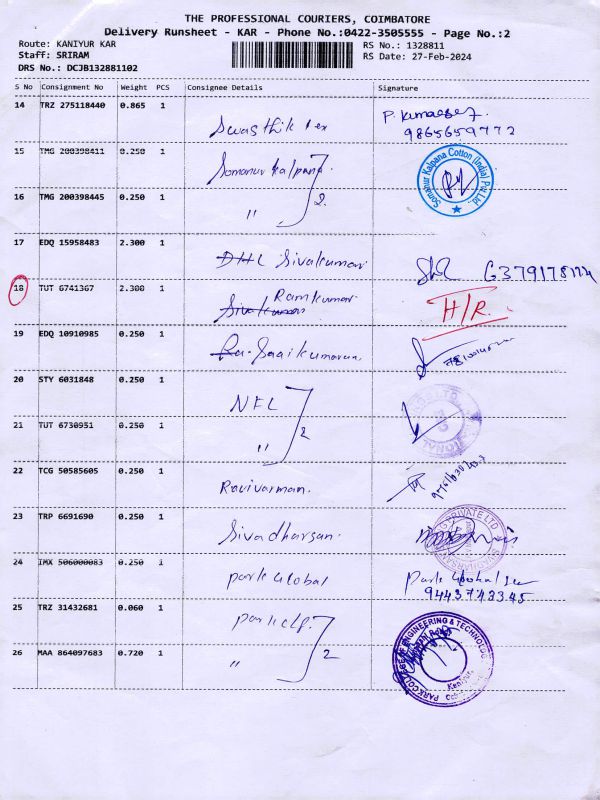 THE PROFESSIONAL COURIERS, COIMBATORE
Delivery Runsheet - KAR - Phone No.:0422-3505555 - Page No.:2
Route: KANIYUR KAR
RS No.: 1328811
Staff: SRIRAM
RS Date: 27-Feb-2024
DRS No.: DCJB132881102
S No Consignment No Weight PCS Consignee Details Signature
14 TRZ 275118440 0.865 1 Swasthik Tex
9865659772
15 TMG 200398411 0.250 1 Somanur Kalpana
Somanur Kalpana Cotton (India) Pvt Ltd.
16 TMG 200398445 0.250 1 " 2
17 EDQ 15958483 2.300 1 DHL Sivakumar
18 TUT 6741367 2.300 1 Sivakumar Ramkumar H/R.
19 EDQ 10910985 0.250 1 Ra Saaikumaran
20 STY 6031848 0.250 1 NFL
21 TUT 6730951 0.250 1 " 2
22 TCG 50585605 0.250 1 Ravivarman
23 TRP 6691690 0.250 1 Sivadharsan
PRIVATE LTD
24 IMX 506000083 0.250 1 Park Global Park Global
9443743345
25 TRZ 31432681 0.060 1 Park clg.
26 MAA 864097683 0.720 1 " 2
PARK COLLEGE OF ENGINEERING & TECHNOLOGY